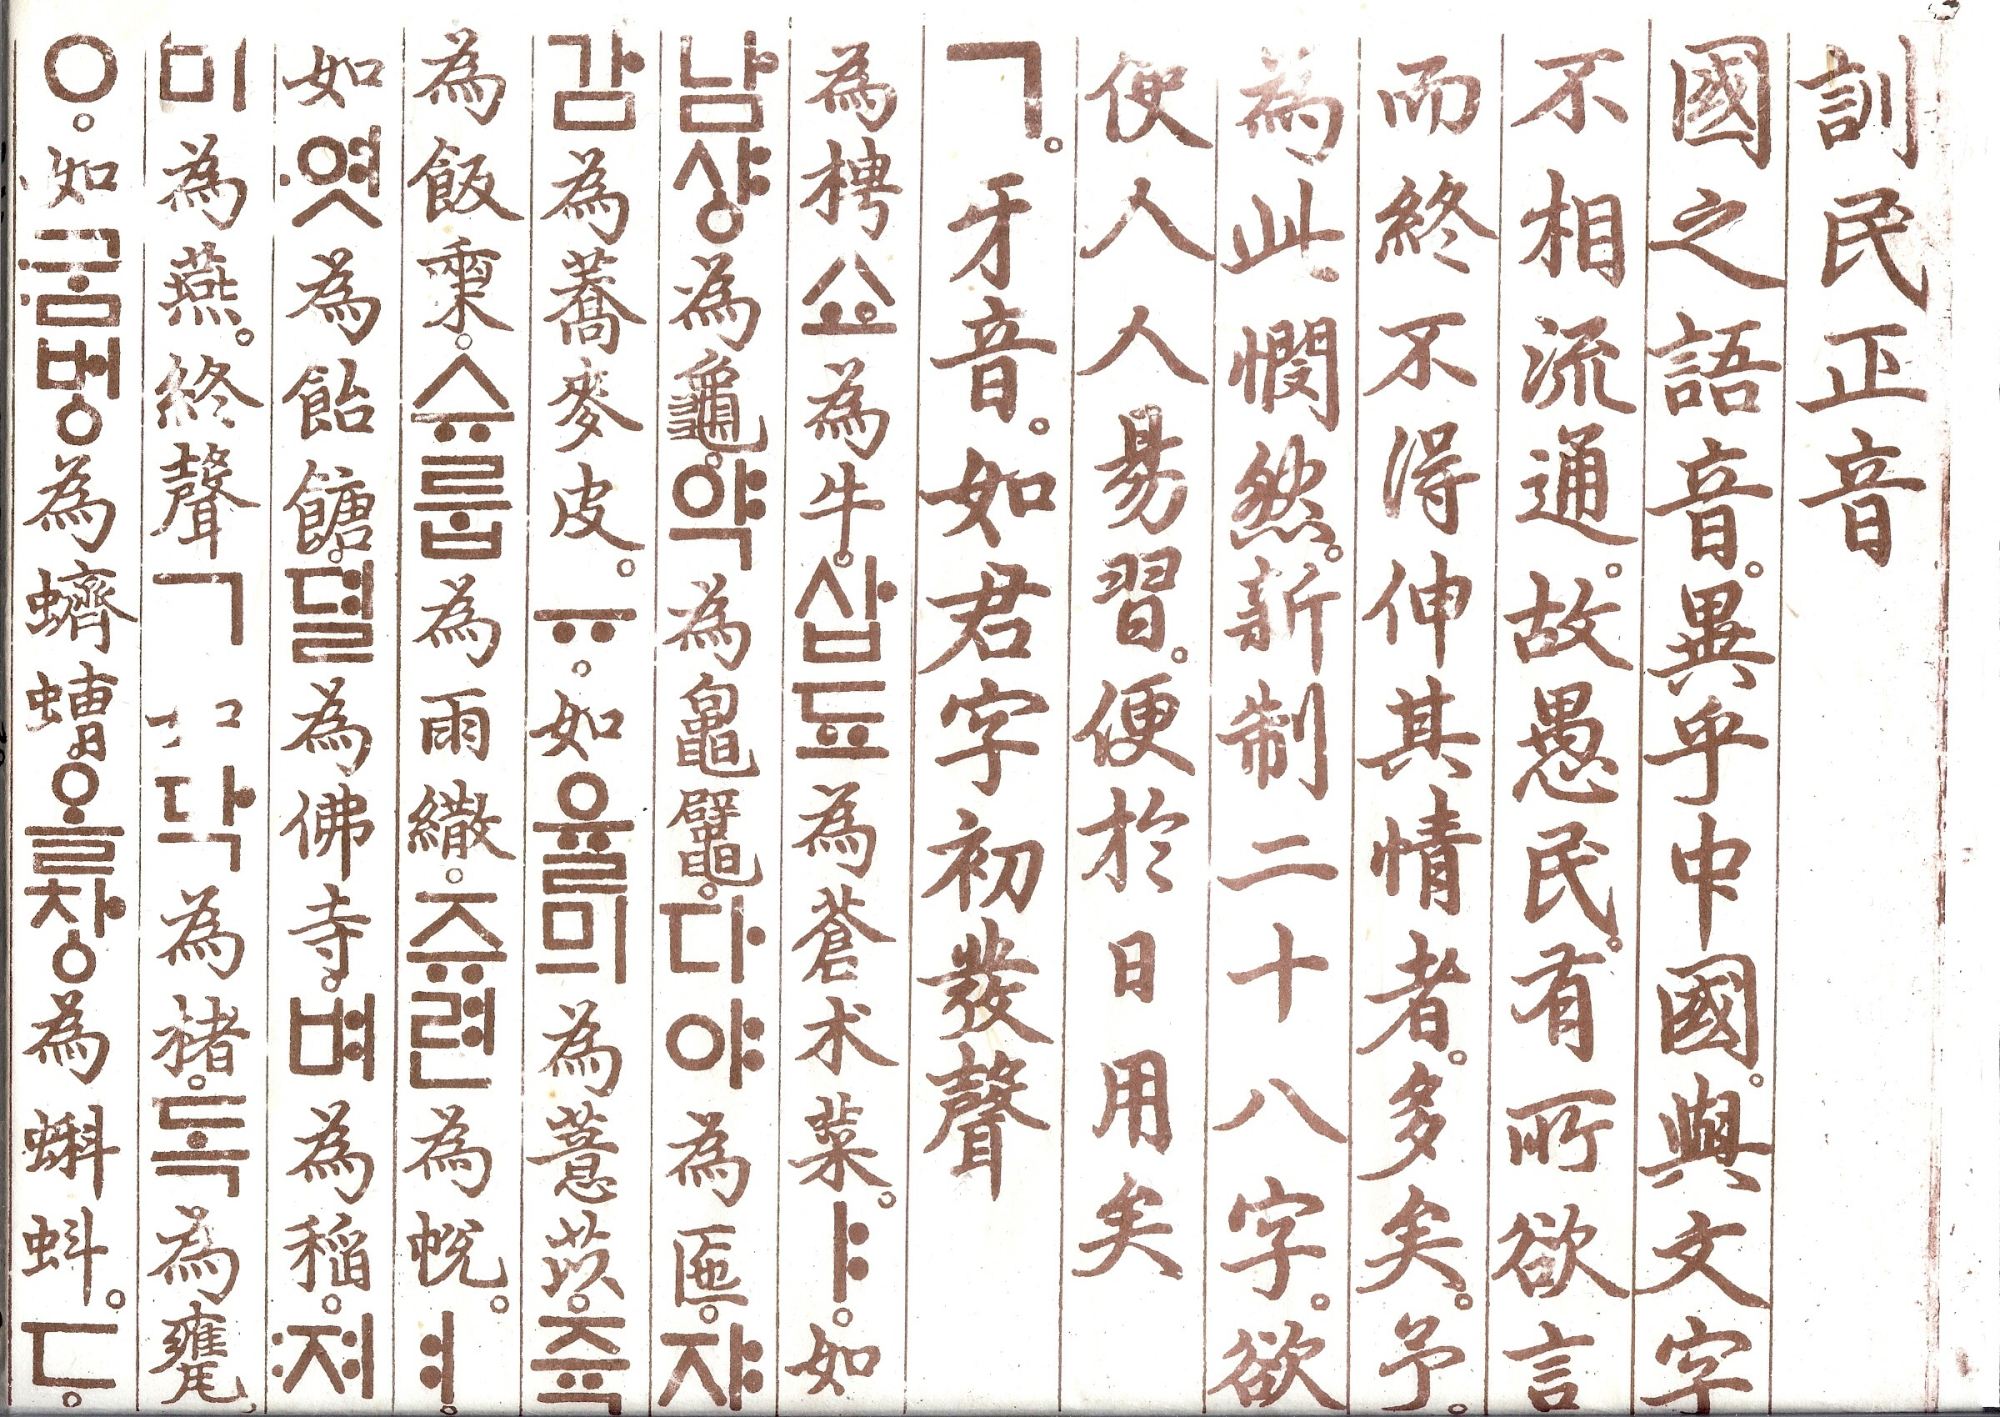 訓民正音
國之語音。異乎中國。與文字
不相流通。故愚民。有所欲言
而終不得伸其情者。多矣。予。
為此憫然。新制二十八字。欲
使人人易習。便於日用矣
ㄱ。牙音。如君字初發聲
為梬쇼為牛。삽됴為蒼朮菜。ㅑ。如
남샹為龜。약為𪓟鼊。다야為匜。쟈
감為蕎麥皮。ㅠ。如율믜為薏苡。쥭
為飯𣖄。슈룹為雨繖。쥬련為帨。ㅕ。
如〯엿為飴餹。뎔為佛寺。벼為稻。〯져
비為燕。終聲ㄱ 如닥為楮。독為甕。
ㆁ。如〯굼벙為蠐螬。올창為蝌蚪。ㄷ。